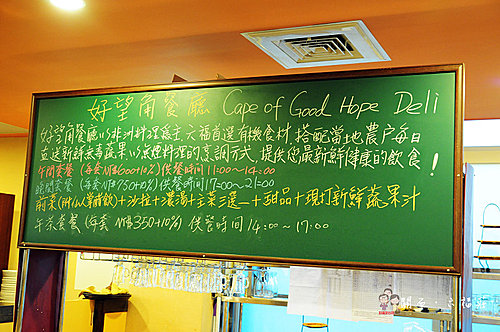 好望角餐廳 Cape of Good Hope Deli
好望角餐廳以非洲料理為主 六福首選有機食材 搭配當地農户每日
直送新鮮無毒蔬果,以無煙料理的烹調方式 提供您最新鮮健康的飲食!
午間套餐 (每套NT$600+10%) 供餐時間11:00~14:00
晚間套餐 (每套NT$750+10%) 供餐時間17:00~21:00
前菜+沙拉+濃湯+主菜三選一+甜品+現打新鮮蔬果汁
午茶套餐 (每套 NT$350+10%) 供餐時間14:00~17:00